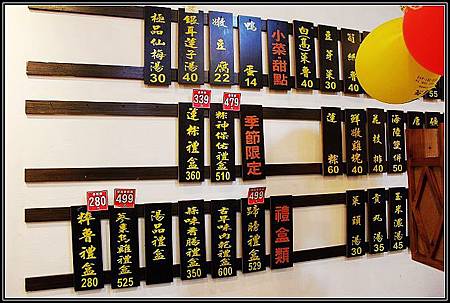 極品仙梅湯
30
銀耳蓮子湯
40
嫩豆腐
22
鴨蛋
14
小菜甜點
白(高)菜魯
40
豆芽菜
30
40
55
339
蓮粽禮盒
360
479
粽神保佑禮盒
510
季節限定
蓮粽
60
鮮嫩雞塊
40
花枝排
40
海陸雙餅
50
280
粹魯禮盒
280
499
525
湯品禮盒
粽味香腸禮盒
350
古早味肉粽禮盒
600
499
蹄膀禮盒
529
禮盒類
菜頭湯
30
貢丸湯
35
玉米濃湯
45